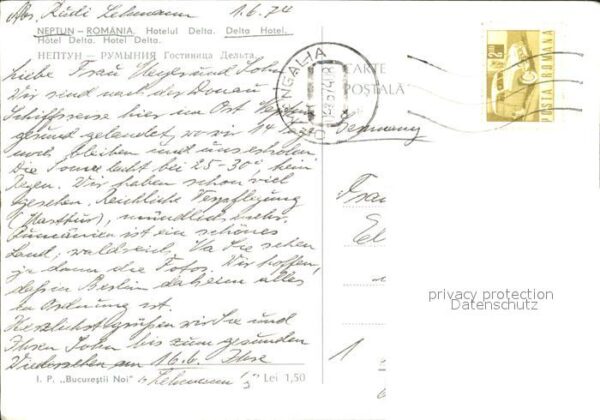 Lehmann 1.6.74
NEPTUN - ROMÂNIA. Hotelul Delta. Delta Hotel.
Hôtel Delta. Hotel Delta.
НЕПТУН — РУМЫНИЯ Гостиница Дельта.
Liebe Frau und Sohn
Wir sind nach der Donau
Schiffsreise hier im Ort Neptun
gesund gelandet, wo wir 14 Tg.
noch bleiben und uns erholen.
Die Sonne lacht bei 25-30°, kein
Regen. Wir haben schon viel
gesehen. Reichliche Verpflegung
mündlich mehr.
Rumänien ist ein schönes
Land, waldreich. Na Sie sehen
ja dann die Fotos. Wir hoffen,
daß in Berlin daheim alles
in Ordnung ist.
Herzlichst grüßen wir Sie und
Ihren Sohn bis zum gesunden
Wiedersehen am 16.6. Ihre
Lehmann's
I. P. „Bucureştii Noi" Lei 1,50
CARTE
POŞTALĂ
MANGALIA
POSTA ROMANA
Germany
Frau
1
privacy protection
Datenschutz